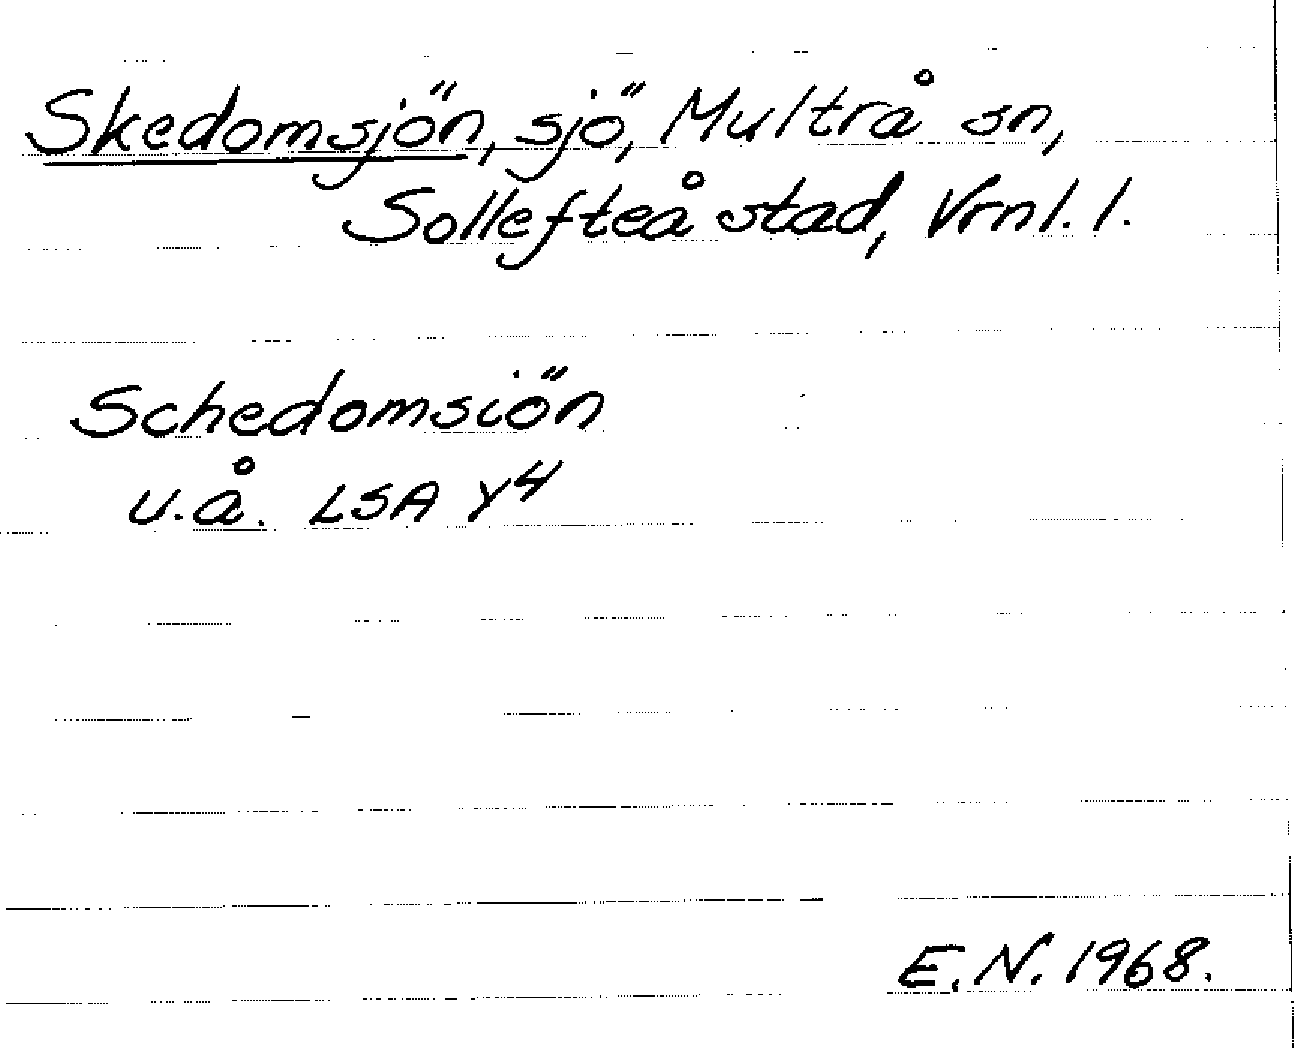 Skedomsjön, sjö, Multrå sn,
Sollefteå stad, Vrnl. l.
Schedomsiön
u.å. LSA Y4
E.N. 1968.